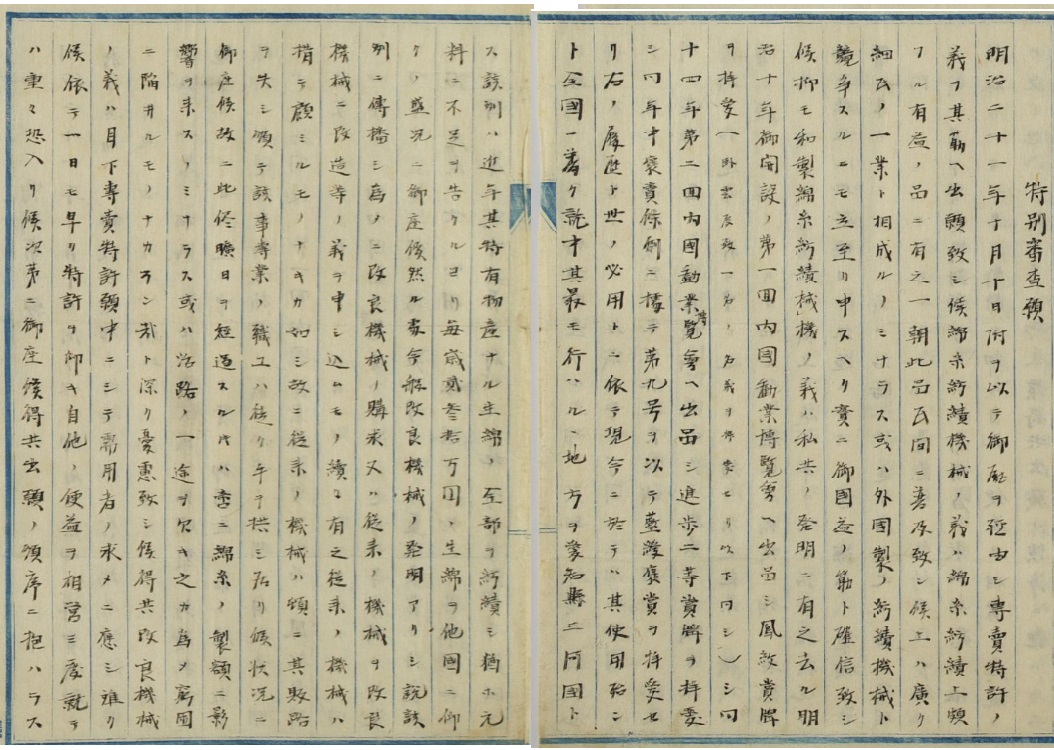 特別審査願
明治二十一年十月十日附ヲ以テ御廰ヲ経由シ専賣特許ノ
義ヲ其筋ヘ出願致シ候綿糸紡績機械ノ義ハ綿糸紡績上頗
フル有益ノ品ニ有之一朝此品民間ニ普及致シ候上ハ廣ク
細民ノ一業ト相成ルノミナラス或ハ外國製ノ紡績機械ト
競争スルニモ立至リ申スヘク實ニ御國益ノ筋ト確信致シ
候抑モ和製綿糸紡績械機ノ義ハ私共ノ發明ニ有之去ル明
治十年御開設ノ第一回内國勧業博覧會ヘ出品シ鳳紋賞牌
ヲ拝受(卧雲辰致一名ノ名義ヲ拝受セリ以下同シ)シ同
十四年第二回内國勧業博覧會ヘ出品シ進歩二等賞牌ヲ拝受
シ同年十褒賞條例ニ據テ第九号ヲ以テ藍綬褒賞ヲ拝受セ
リ右ノ履歴ト世ノ必用トニ依テ現今ニ於テハ其使用殆ン
ト全國ニ普ク就中其最モ行ハルヽ地方ヲ愛知縣三河國ト
ス該州ハ近年其特有物産ナル生綿ノ全部ヲ紡績シ猶ホ元
料ニ不足ヲ告クルヨリ毎歳貳参百万円ノ生綿ヲ他國ニ仰
クノ盛况ニ御座候然ル處今般改良機械ノ發明アリシ説該
州ニ傳播シ為メニ改良機械ノ購求又ハ従来ノ機械ヲ改良
機械ニ改造等ノ義ヲ申シ込ムモノ續々有之従来ノ機械ハ
措テ顧ミルモノナキカ如シ故ニ従来ノ機械ハ頓ニ其販路
ヲ失シ頗テ該事専業ノ職工ハ徒ラ手ヲ拱シ居リ候状况ニ
御座候故ニ此侭曠日ヲ経過スル片ハ啻ニ綿糸ノ製額ニ影
響ヲ来スノミナラス或ハ活路ノ一途ヲ欠キ之カ為メ窮困
ニ陥井ルモノナカラン哉ト深ク憂慮致シ候得共改良機械
ノ義ハ目下専賣特許願中ニシテ需用者ノ求メニ應シ難ク
候依テ一日モ早ク特許ヲ仰キ自他ノ便益ヲ相営ミ度就テ
ハ重々恐入リ候次第ニ御座候得共出願ノ順序ニ抱ハラス